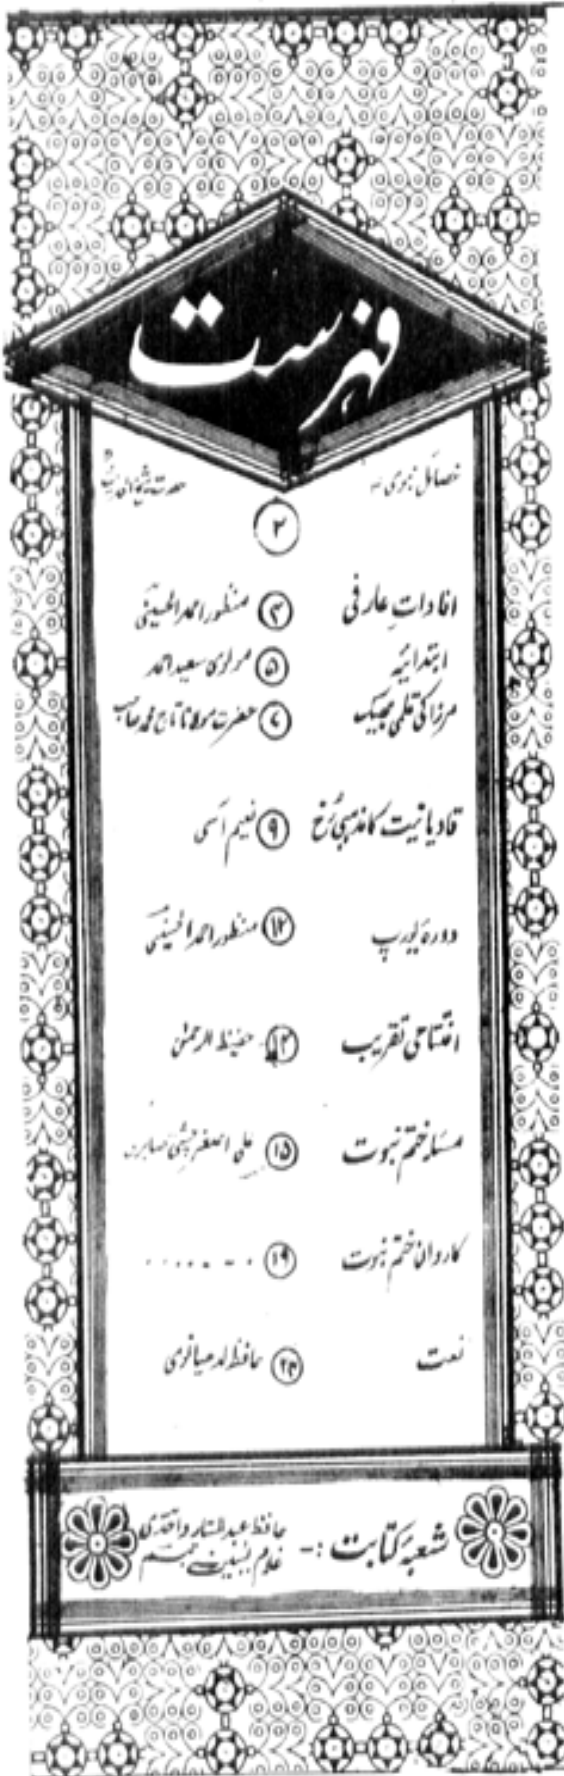 فہرست
خصائل نبوی حضرت شیخ الحدیث
۲
افاداتِ عارفی ۴ منظور احمد الحسینی
ابتدائیہ ۵ مولوی سعید احمد
مرزا کی قلمی بھیک ۷ حضرت مولانا تاج محمد صاحب
قادیانیت کا مذہبی رُخ ۹ نعیم آسی
دورۂ یورپ ۱۲ منظور احمد الحسینی
افتتاحی تقریب حفیظ الرحمٰن
مسئلہ ختم نبوت ۱۵ علی اصغر چشتی صابری
کاروانِ ختم نبوت ۱۹ . . . . . . .
نعت ۲۴ حافظ لدھیانوی
شعبۂ کتابت :- حافظ عبدالستار واحدی
غلام یٰسین تبسم